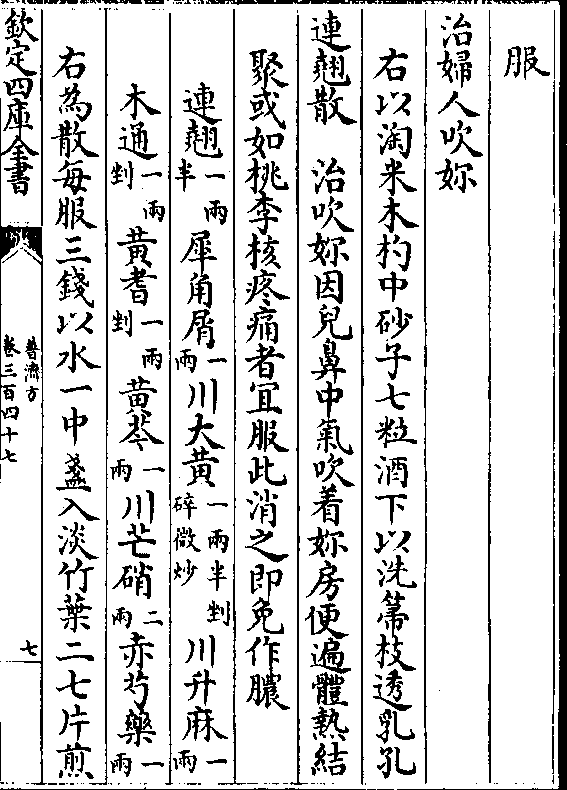 服
治婦人吹妳
右以淘米木杓中砂子七粒酒下以洗箒枝透乳孔
連翹散　治吹妳因兒鼻中氣吹着妳房便遍體熱結
聚或如桃李核疼痛者宜服此消之即免作膿
連翹一兩半　犀角屑一兩　川大黄一兩半剉碎微炒　川升麻一兩
木通一兩剉　黄耆一兩剉　黄芩一兩　川芒硝二兩　赤芍藥一兩
右為散每服三錢以水一中盞入淡竹葉二七片煎
欽定四庫全書
普濟方
卷三百四十七
七